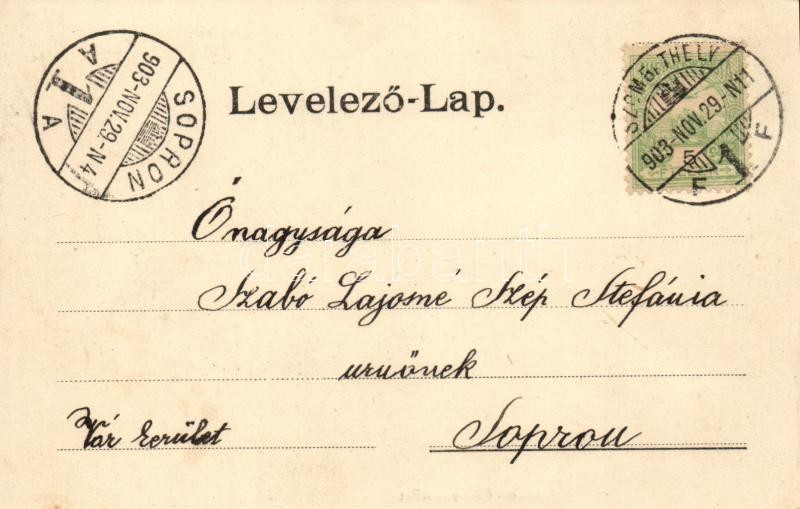 SOPRON
903-NOV.29-N4
A 1 A
Levelező-Lap.
SZOMBATHELY
903-NOV.29.-N11
F 1 F
5
Ónagysága
Szabó Lajosné Szép Stefánia
urnőnek
Vár kerület
Sopron
darabanth